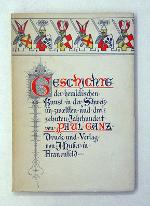 Geschichte
der heraldischen
Kunst in der Schweiz
im zwölften und drei-
zehnten Jahrhundert
von PAUL GANZ
Druck und Verlag
von J. Huber in
Frauenfeld